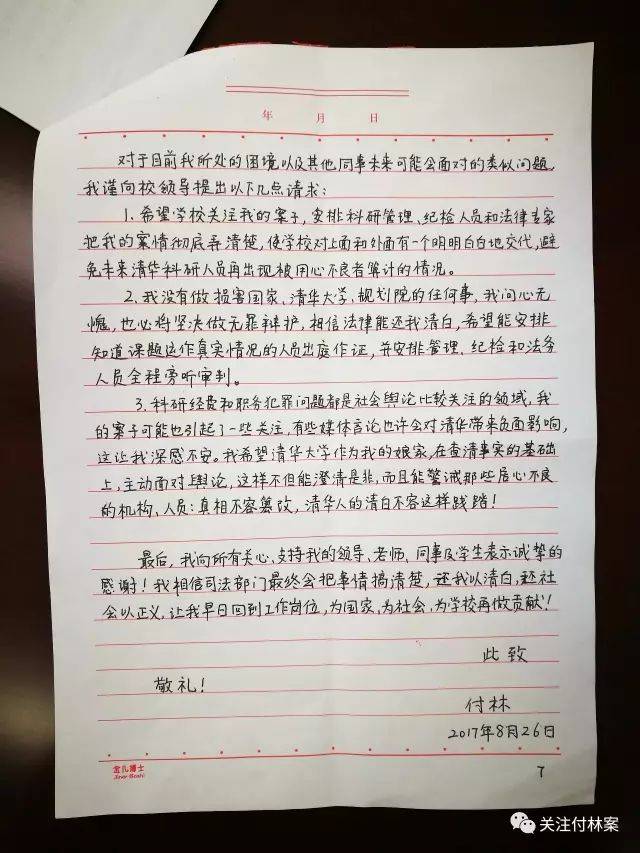 年 月 日
对于目前我所处的困境以及其他同事未来可能会面对的类似问题,
我谨向校领导提出以下几点请求:
1. 希望学校关注我的案子,安排科研管理、纪检人员和法律专家
把我的案情彻底弄清楚,使学校对上面和外面有一个明明白白地交代,避
免未来清华科研人员再出现被用心不良者算计的情况。
2. 我没有做损害国家、清华大学、规划院的任何事,我问心无
愧,也必将坚决做无罪辩护,相信法律能还我清白,希望能安排
知道课题运作真实情况的人员出庭作证,并安排管理、纪检和法务
人员全程旁听审判。
3. 科研经费和职务犯罪问题都是社会舆论比较关注的领域,我
的案子可能也引起了一些关注,有些媒体言论也许会对清华带来负面影响,
这让我深感不安。我希望清华大学作为我的娘家,在查清事实的基础
上,主动面对舆论,这样不但能澄清是非,而且能警诫那些居心不良
的机构、人员:真相不容篡改,清华人的清白不容这样践踏!
最后,我向所有关心、支持我的领导、老师、同事及学生表示诚挚的
感谢!我相信司法部门最终会把事情搞清楚,还我以清白,还社
会以正义,让我早日回到工作岗位,为国家,为社会,为学校再做贡献!
此致
敬礼!
付林
2017年8月26日
金凡博士
7
关注付林案